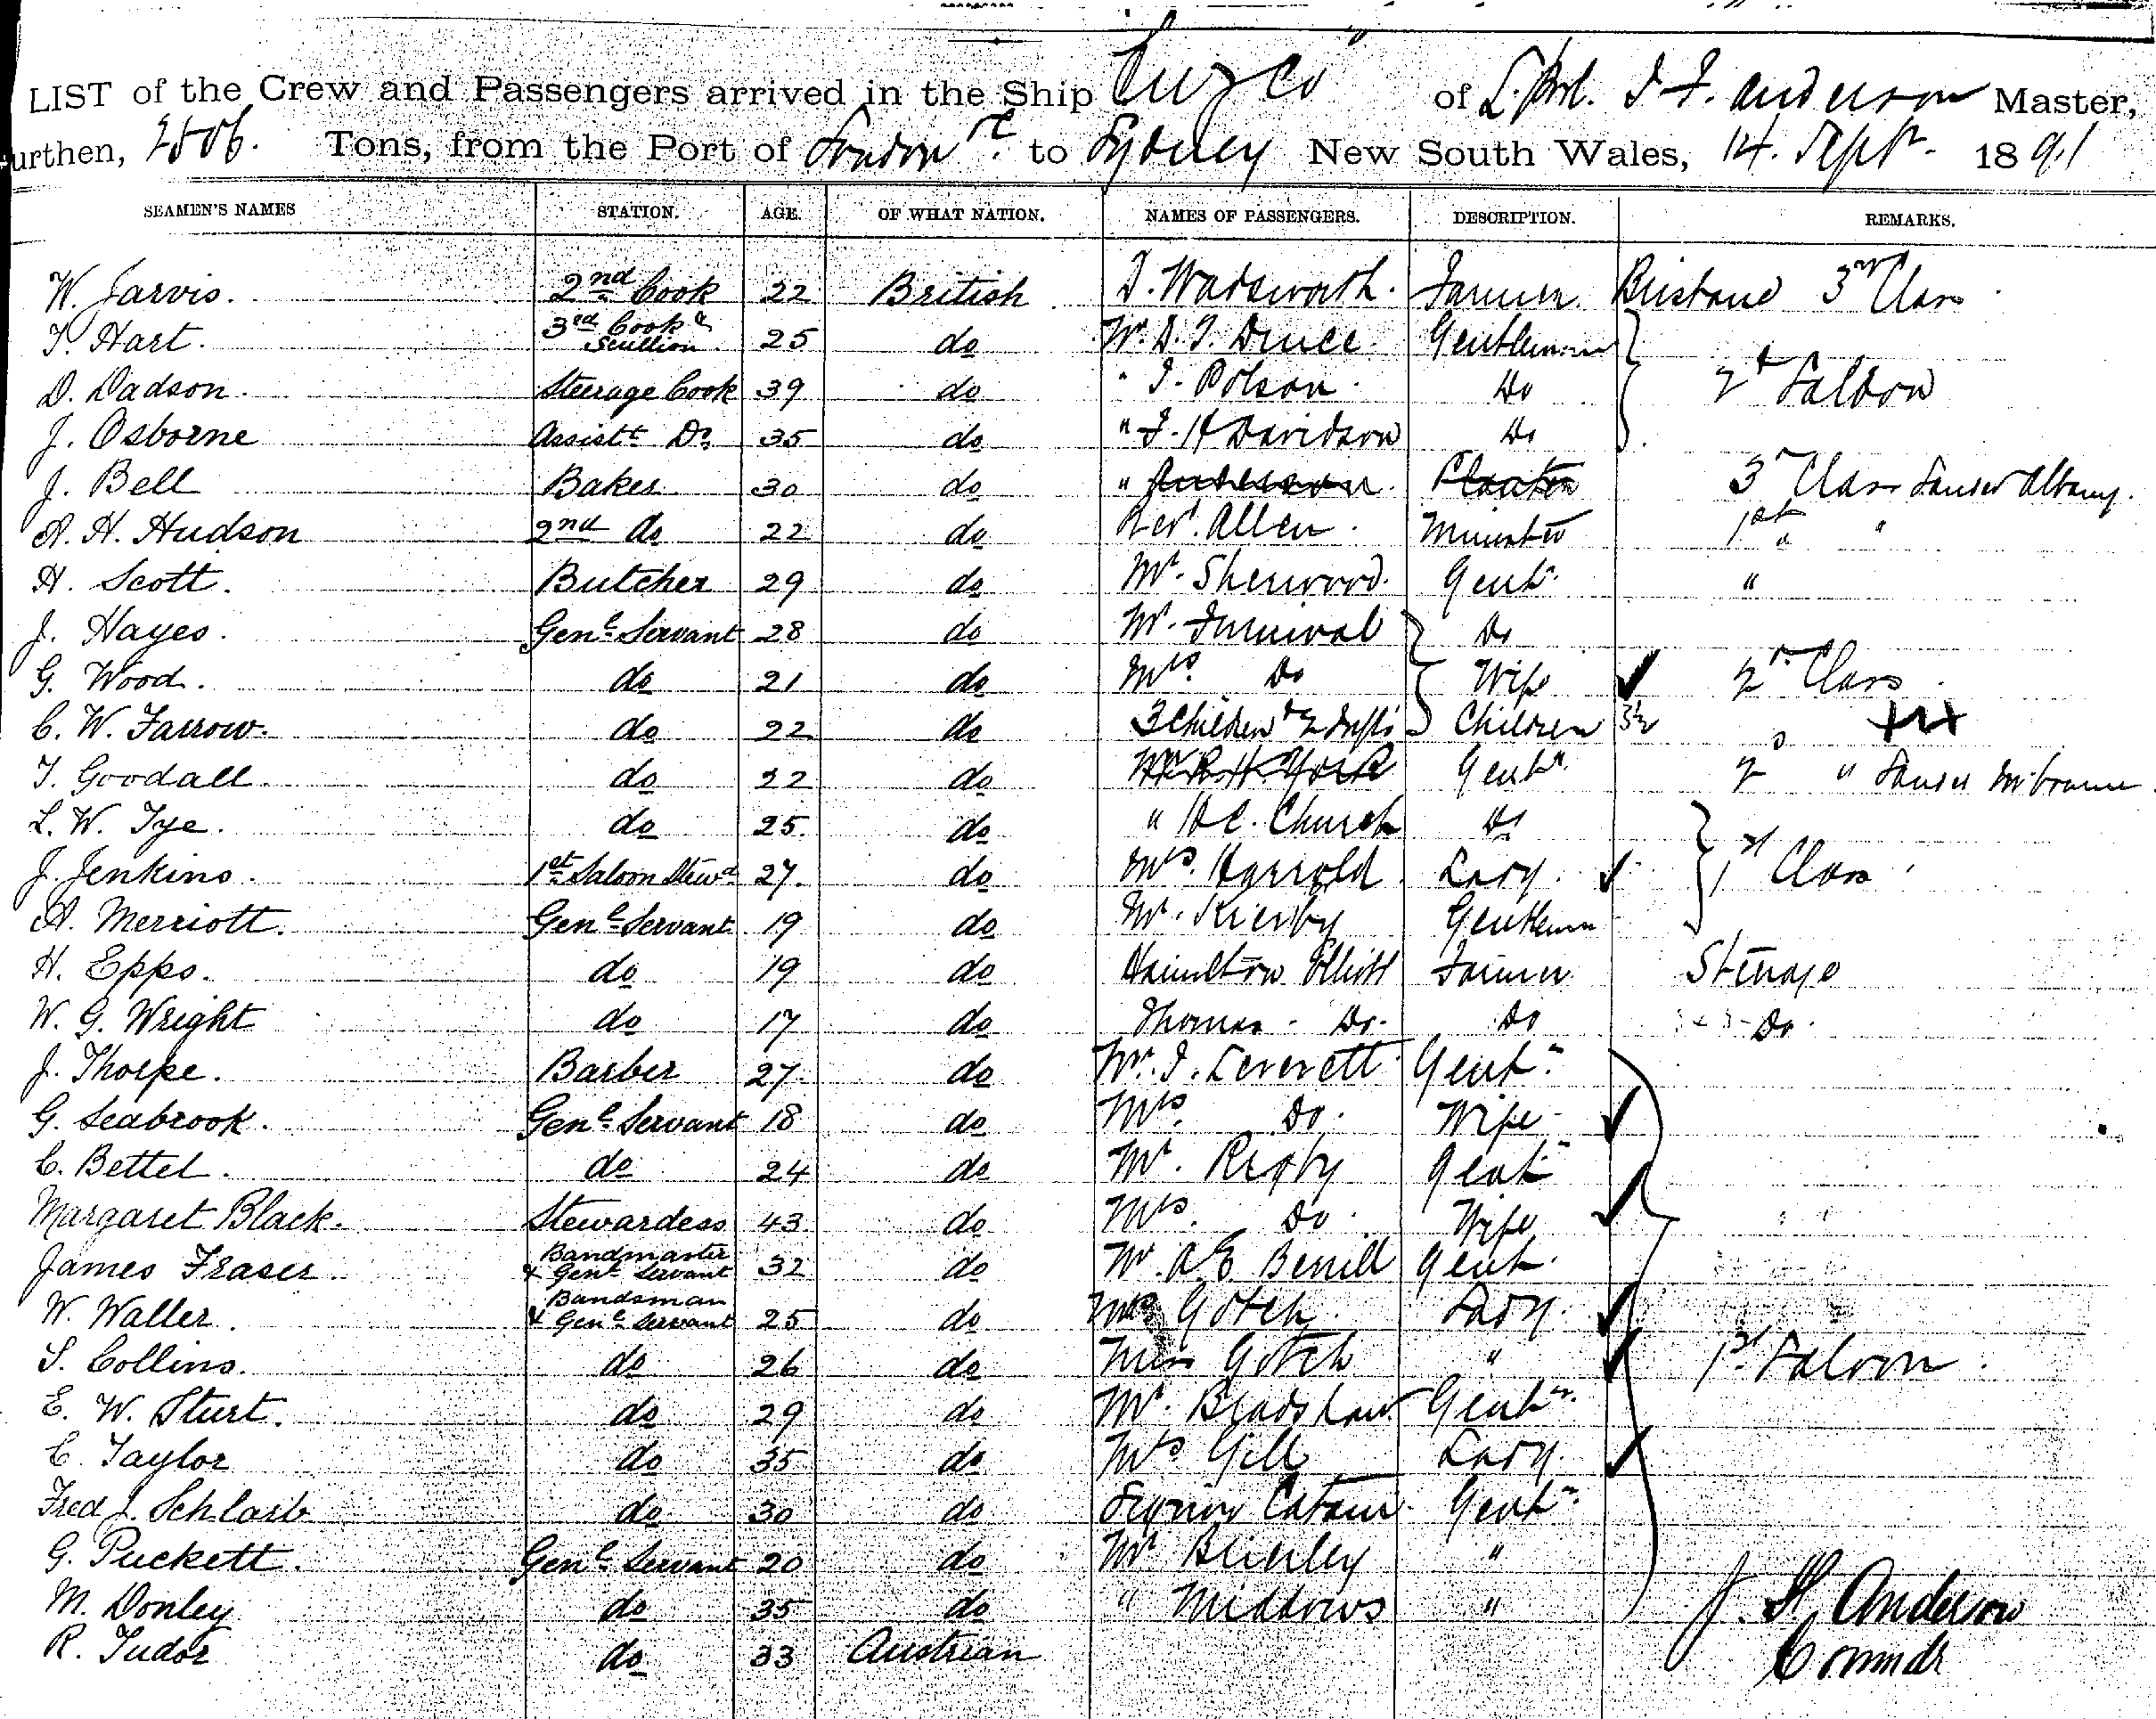 LIST of the Crew and Passengers arrived in the Ship "Cuzco" of L.pool. J. F. Anderson Master,
urthen, 2506. Tons, from the Port of London &c to Sydney New South Wales, 14. Sept. 1891
SEAMEN'S NAMES STATION. AGE. OF WHAT NATION. NAMES OF PASSENGERS. DESCRIPTION. REMARKS.
W. Jarvis. 2nd Cook 22 British Wadsworth. Farmer Brisbane 3rd Class
T. Hart. 3rd Cook & Scullion 25 do Mr. D. T. Druce Gentleman
D. Dadson. Steerage Cook 39 do " J. Polson Do 2d Saloon
J. Osborne Assistt. Do. 35 do " J. H Davidson Do
J. Bell Baker 30 do " Anderson Planter 3rd Class Landed Albany.
A. H. Hudson 2nd do 22 do Revd. Allen. Minister 1st " "
H. Scott. Butcher 29 do Mr. Sherwood. Gentn. "
J. Hayes. Genl. Servant 28 do Mr. Furnival Do
G. Wood. do 21 do Mrs. Do Wife 2nd Class
C. W. Farrow. do 22 do 3 Children & 2 Infts Children
T. Goodall. do 22 do York Gentn. 2 " Landed Melbourne
L. W. Tye. do 25. do " H C. Church Do
J. Jenkins. 1st Saloon Stewd 27. do Mrs. Harrold Lady. 1st Class
A. Merriott. Genl. Servant 19 do Mr. Kierby Gentleman
H. Epps. do 19 do Hamilton Elliott Farmer Steerage
W. G. Wright do 17 do Thomas Do. Do Do.
J. Thorpe. Barber 27. do Mr. J. Leverett Gentn.
G. Seabrook. Genl. Servant 18 do Mrs. Do. Wife
C. Bettel. do 24 do Mr. Rigby Gentn
Margaret Black. Stewardess 43 do Mrs. Do. Wife
James Fraser. Bandmaster & Genl. Servant 32 do Mr. A E Berrill Gent.
W. Waller. Bandsman & Genl. Servant 25 do Mrs Gotch Lady.
S. Collins. do 26 do Miss Gotch " 1st Saloon.
E. W. Sturt. do 29 do Mr. Bradshaw Gentn.
C. Taylor do 35 do Mrs Gill Lady.
Fred J. Schlarb do 30 do Signor Gentn.
G. Puckett. Genl. Servant 20 do Mr Brierley "
M. Donley do 35 do " Middows "
R. Tudor do 33 Austrian
J. F. Anderson
Commdr